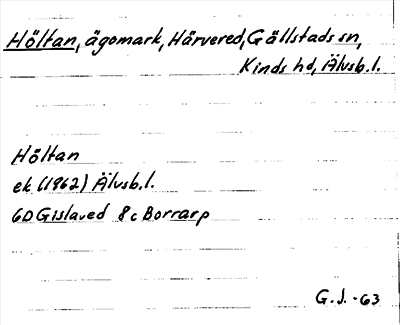 Höltan, ägomark, Härvered, Gällstads sn,
Kinds hd, Älvsb.l.
Höltan
ek (1962) Älvsb.l.
6D Gislaved 8c Borrarp
G.J.-63